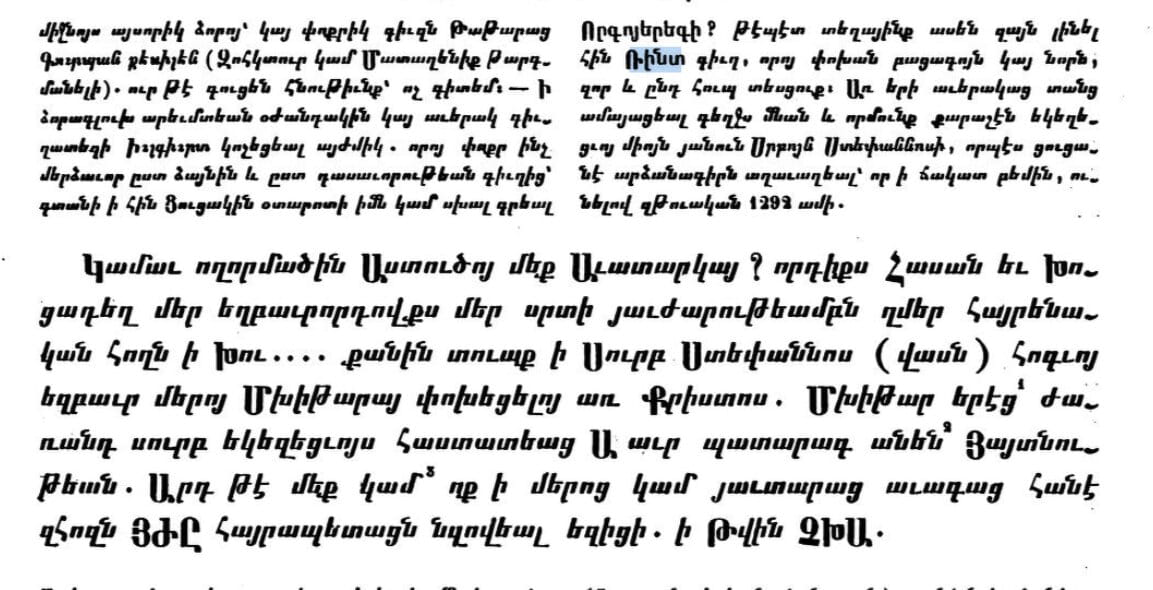 միջնոյս այսորիկ ձորոյ՝ կայ փոքրիկ գիւղն Թաթարաց
Գուրպան քեսիլեն (Զոհկտուր կամ Մատաղենիք Թարգ֊
մանելի)․ ուր թէ գուցեն հնութիւնք՝ ոչ գիտեմ։ — Ի
ձորագլուխ արեւմտեան օժանդակին կայ աւերակ գիւ֊
ղատեղի կոչեցեալ այժմիկ․ որոյ փոքր ինչ
մերձաւոր ըստ ձայնին և ըստ դասաւորութեան գիւղից՝
գտանի ի հին Յուցակին օտարոտի իմն կամ սխալ գրեալ
Որգոյերեգի? Թէպէտ տեղայինք ասեն զայն լինել
հին Ռինտ գիւղ, որոյ փոխան բացագոյն կայ նորն,
զոր և ընդ հուպ տեսցուք։ Առ երի աւերակաց տանց
ամայացեալ գեղջս մնան և որմունք քարաշէն եկեղե֊
ցւոյ միոյն յանուն Սրբոյն Ստեփաննոսի, որպէս ցուցա֊
նէ արձանագիրն աղաւաղեալ՝ որ ի ճակատ բեմին, ու֊
նելով զթուական 1292 ամի․
Կամաւ ողորմածին Աստուծոյ մեք Աւատարկայ ? որդիքս Հասան եւ Խո֊
ցադեղ մեր եղբաւրորդովքս մեր սրտի յաւժարութեամբն զմեր հայրենա֊
կան հողն ի Խու.... քանին տուաք ի Սուրբ Ստեփաննոս (վասն) հոգւոյ
եղբաւր մերոյ Մխիթարայ փոխեցելոյ առ Քրիստոս․ Մխիթար երէց¹ ժա֊
ռանդ սուրբ եկեղեցւոյս հաստատեաց Ա աւր պատարագ անեն² Յայտնու֊
թեան․ Արդ թէ մեք կամ³ ոք ի մերոց կամ յաւտարաց աւագաց հանէ
զհողն ՅԺԸ հայրապետացն նզովեալ եղիցի․ ի Թվին ՉԽԱ․